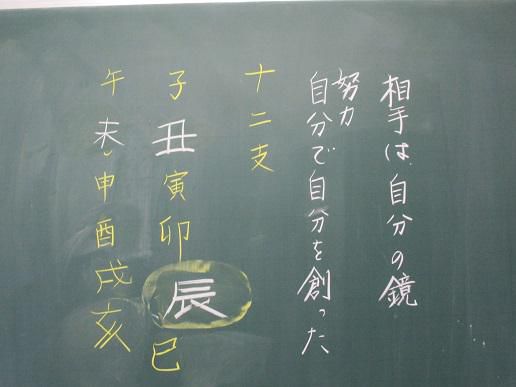 相手は自分の鏡
努力
自分で自分を創った
十二支
子丑寅卯辰巳
午未申酉戌亥